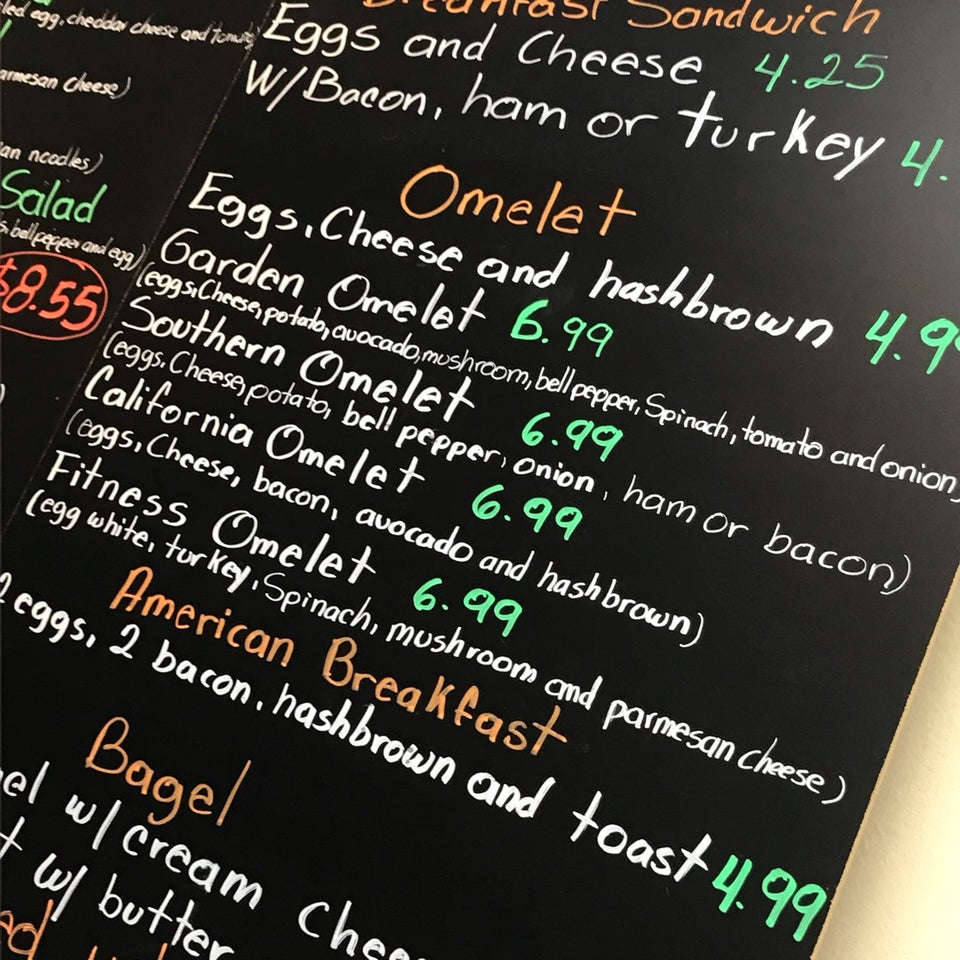 egg, cheddar cheese and
cheese)
noodles)
Salad
bell pepper and egg)
$8.55
Breakfast Sandwich
Eggs and Cheese 4.25
W/Bacon, ham or turkey 4.
Omelet
Eggs, Cheese and hashbrown 4.9
Garden Omelet 6.99
(eggs, Cheese, potato, avocado, mushroom, bell pepper, Spinach, tomato and onion)
Southern Omelet 6.99
(eggs, Cheese, potato, bell pepper, onion, ham or bacon)
California Omelet 6.99
(eggs, Cheese, bacon, avocado and hashbrown)
Fitness Omelet 6.99
(egg white, turkey, Spinach, mushroom and parmesan cheese)
American Breakfast
2 eggs, 2 bacon, hashbrown and toast 4.99
Bagel
w/ cream
w/ butter